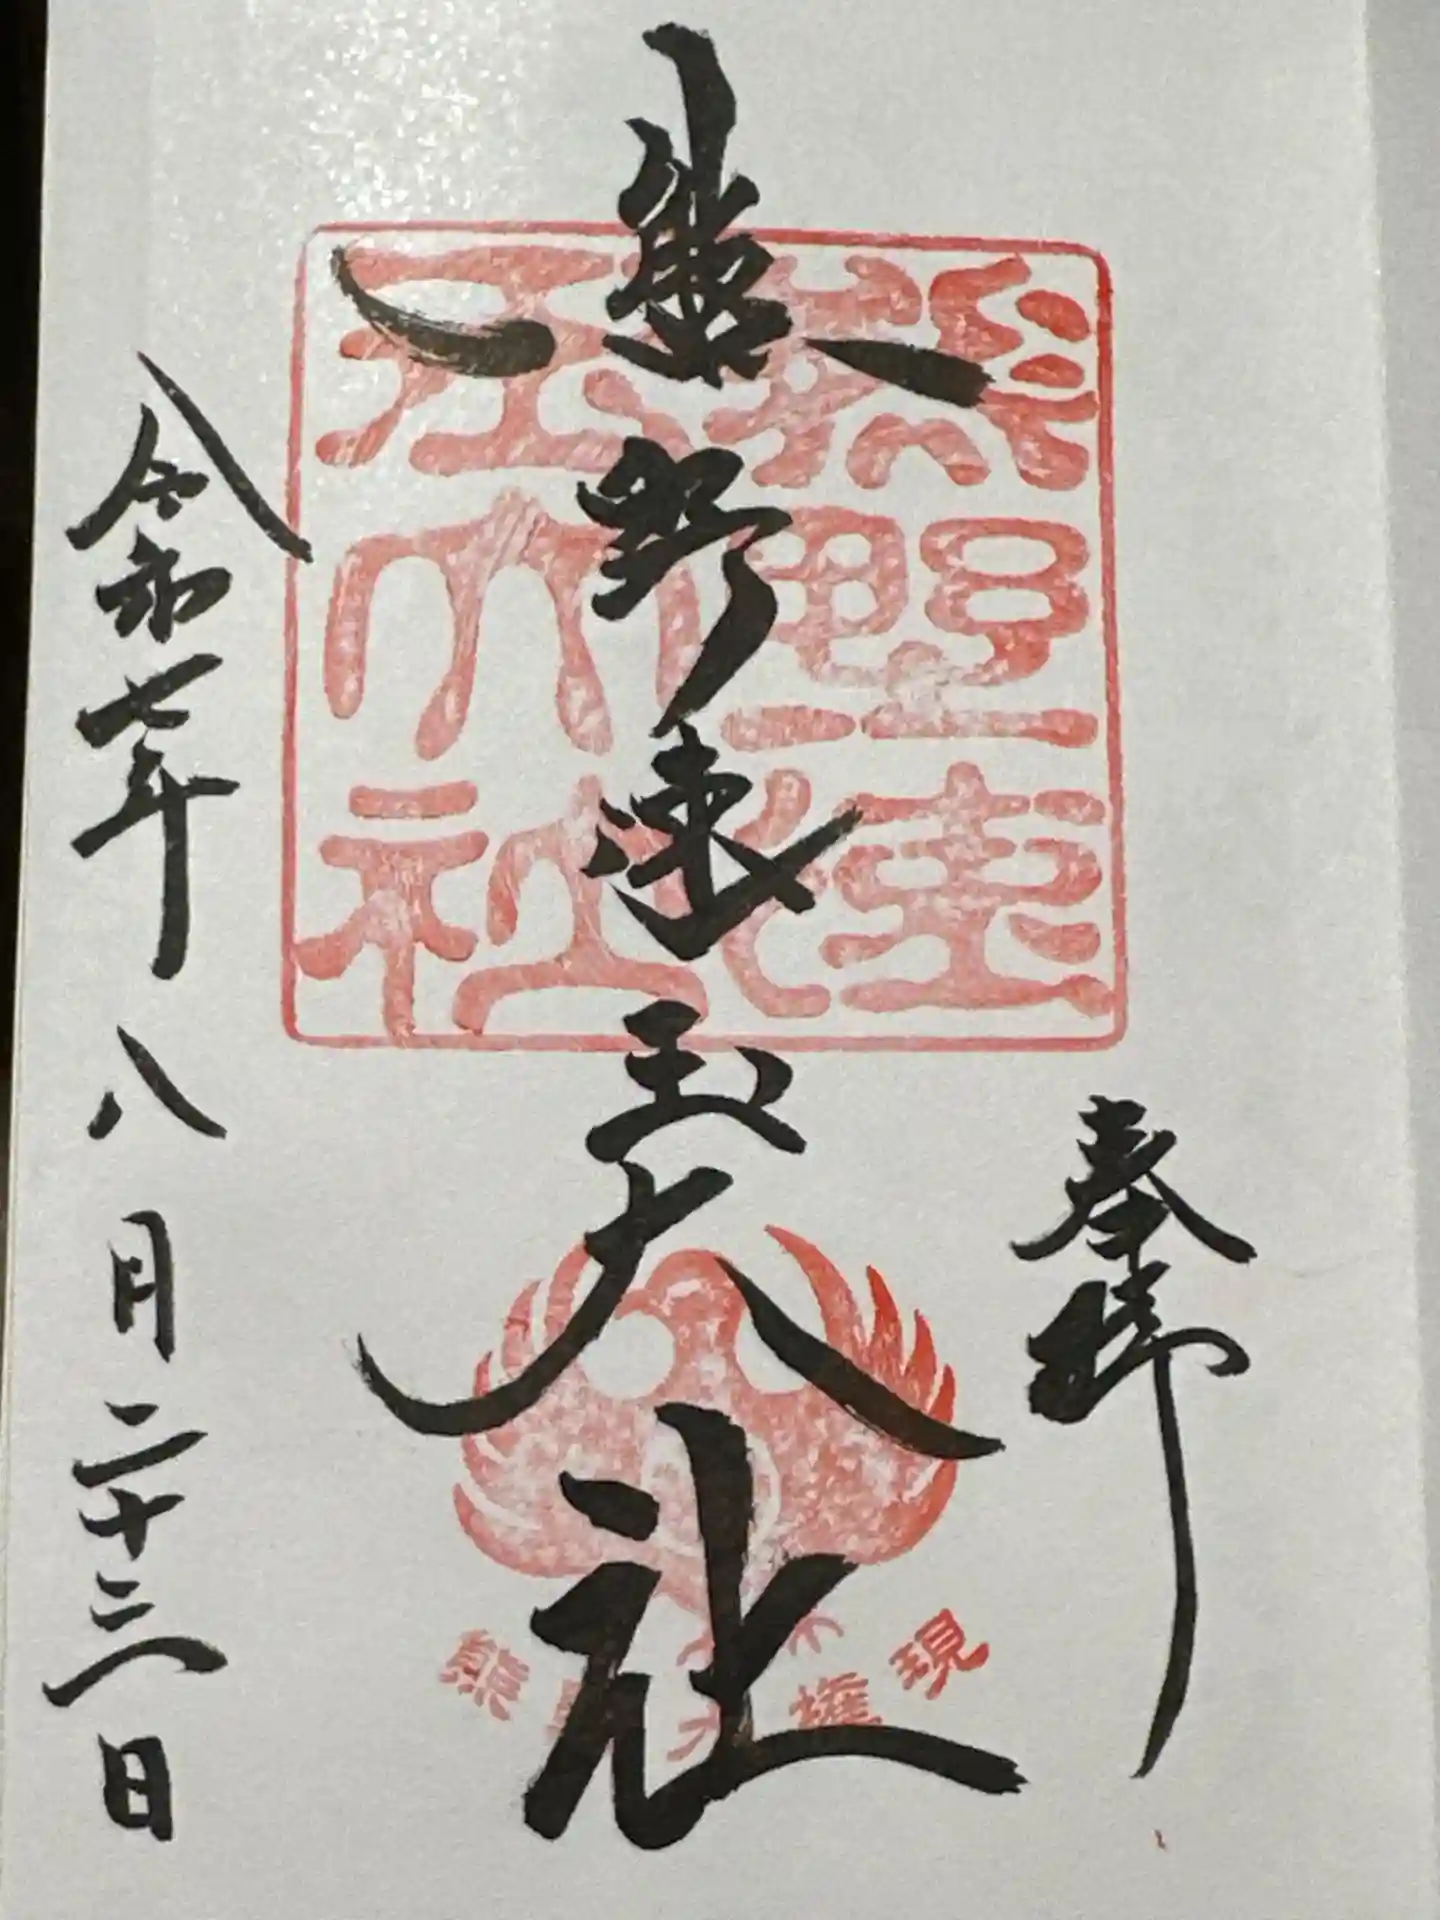 奉拝
熊野速玉大社
令和七年八月二十三日
熊野速玉大社
熊野大権現